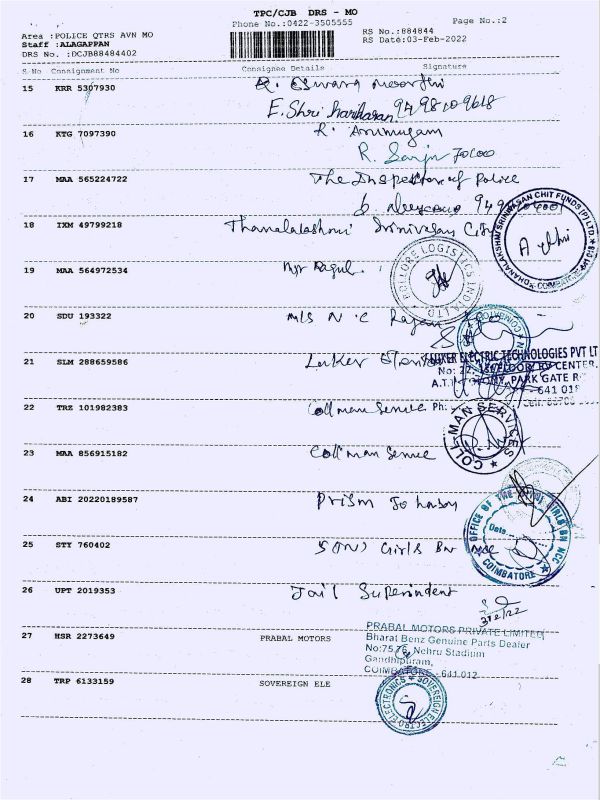 TPC/CJB DRS - MO
Phone No.:0422-3505555
Page No.:2
Area :POLICE QTRS AVN MO
RS No.:884844
Staff :ALAGAPPAN
RS Date:03-Feb-2022
DRS No. :DCJB88484402
S No Consignment No Consignee Details Signature
15 KRR 5307930
E. Shri Hariharan 9498109618
16 KTG 7097390 R. Arumugam
R. Sanju
17 MAA 565224722 The Inspector of Police
18 IXM 49799218 Srinivasan
DHANALAKSHMI SRINIVASAN CHIT FUNDS (P) LTD.
COIMBATORE
19 MAA 564972534 Mr Ragul.
LOGISTICS INDIA
20 SDU 193322 M/s N.C Rajam
21 SLM 288659586
LUKER ELECTRIC TECHNOLOGIES PVT LT
CENTER,
PARK GATE R
641 018
22 TRZ 101982383 Coll man Service Ph:
COLL-MAN SERVICES
23 MAA 856915182 Coll man Service
24 ABI 20220189587 Prism Johnson
25 STY 760402 5 (TN) Girls BN NCC
OFFICE OF THE GIRLS BN NCC
Date
COIMBATORE
26 UPT 2019353 Jail Superindent
3/2/22
27 HSR 2273649 PRABAL MOTORS
PRABAL MOTORS PRIVATE LIMITED
Bharat Benz Genuine Parts Dealer
No:75,76, Nehru Stadium
Gandhipuram,
COIMBATORE - 641 012
28 TRP 6133159 SOVEREIGN ELE
SOVEREIGN ELECTRO
ELECTRONICS